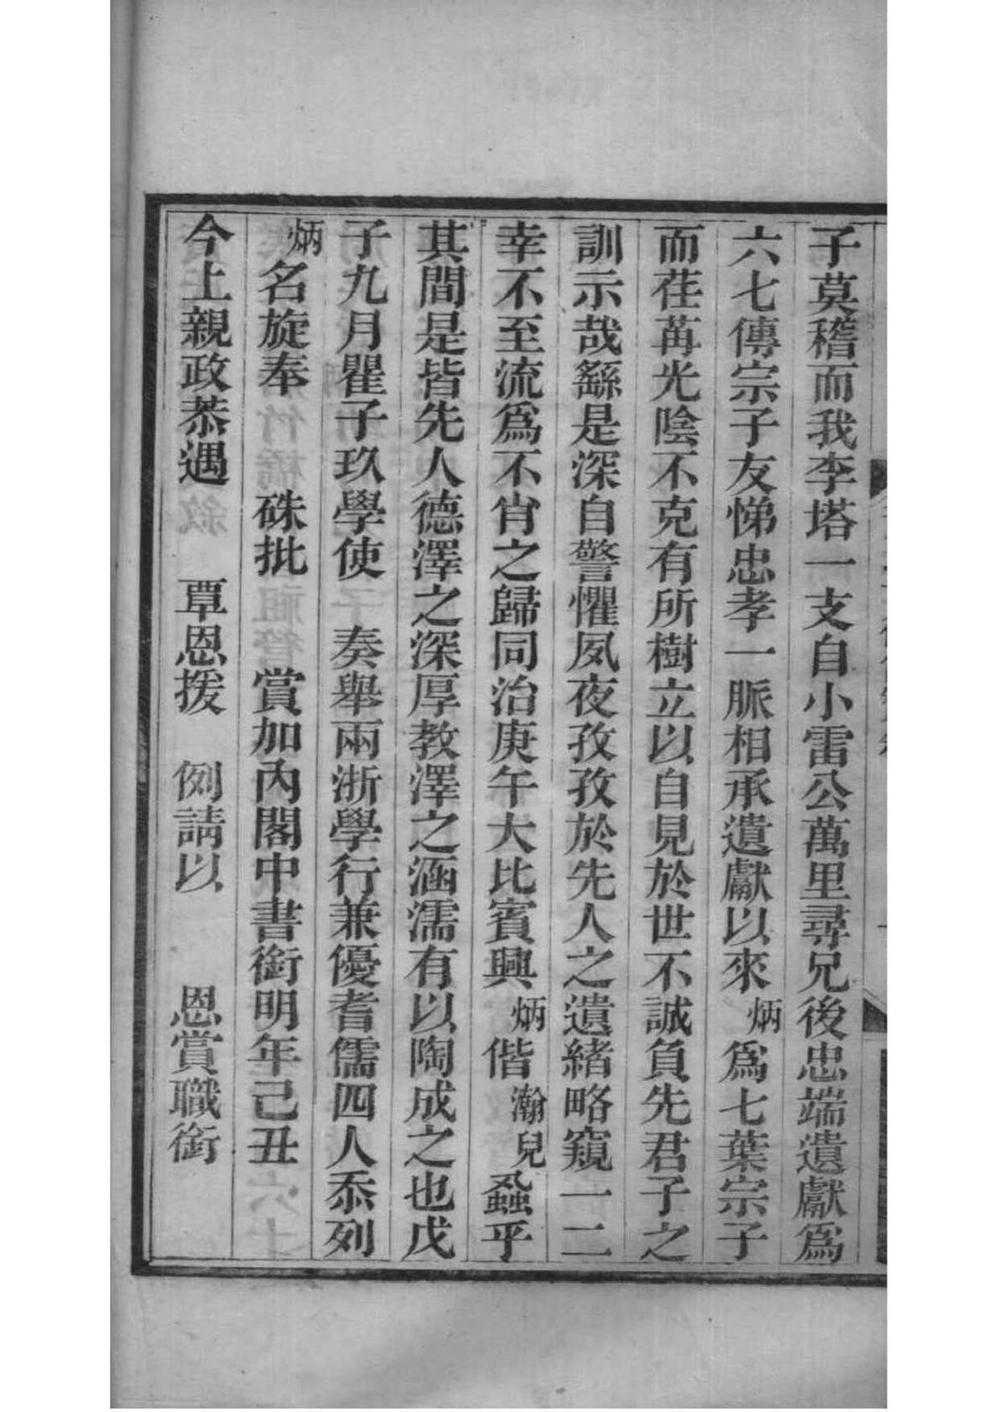 子莫稽而我李塔一支自小雷公萬里尋兄後忠端遺獻爲
六七傳宗子友悌忠孝一脈相承遺獻以來炳爲七葉宗子
而荏苒光陰不克有所樹立以自見於世不誠負先君子之
訓示哉繇是深自警懼夙夜孜孜於先人之遺緒略窺一二
幸不至流爲不肖之歸同治庚午大比賓興炳偕瀚兒蝨乎
其間是皆先人德澤之深厚教澤之涵濡有以陶成之也戊
子九月瞿子玖學使 奏舉兩浙學行兼優耆儒四人忝列
炳名旋奉 硃批 賞加內閣中書銜明年己丑
今上親政恭遇 覃恩援 例請以 恩賞職銜